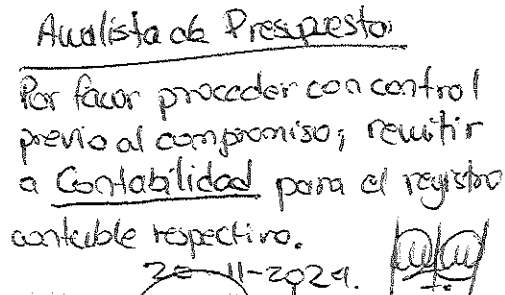 Analista de Presupesto
Por favor proceder con control
previo al compromiso; remitir
a Contabilidad para el registro
contable respectivo.
11-2024.